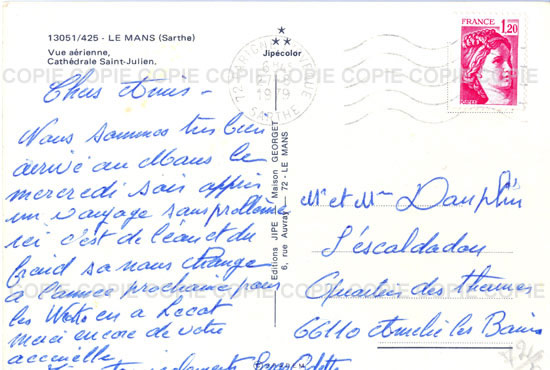 13051/425 - LE MANS (Sarthe)
Vue aérienne,
Cathédrale Saint-Julien.
Jipécolor
FRANCE
1,20
72
SARTHE
COPIE COPIE COPIE COPIE COPIE COPIE COPIE
Chers Amis -
Nous sommes très bien
arrivé au Mans le
mercredi soir après
un voyage sans problème
ici c'est de l'eau et du
froid sa nous change
à l'année prochaine pour
les
merci encore de votre
accueille
Editions JIPE - Maison GEORGET
6, rue Auvray - 72 - LE MANS
Mr et Mme Dauphin
L'escaldadou
Quartier des thermes
66110 Amélie les Bains
COPIE COPIE COPIE COPIE COPIE COPIE COPIE